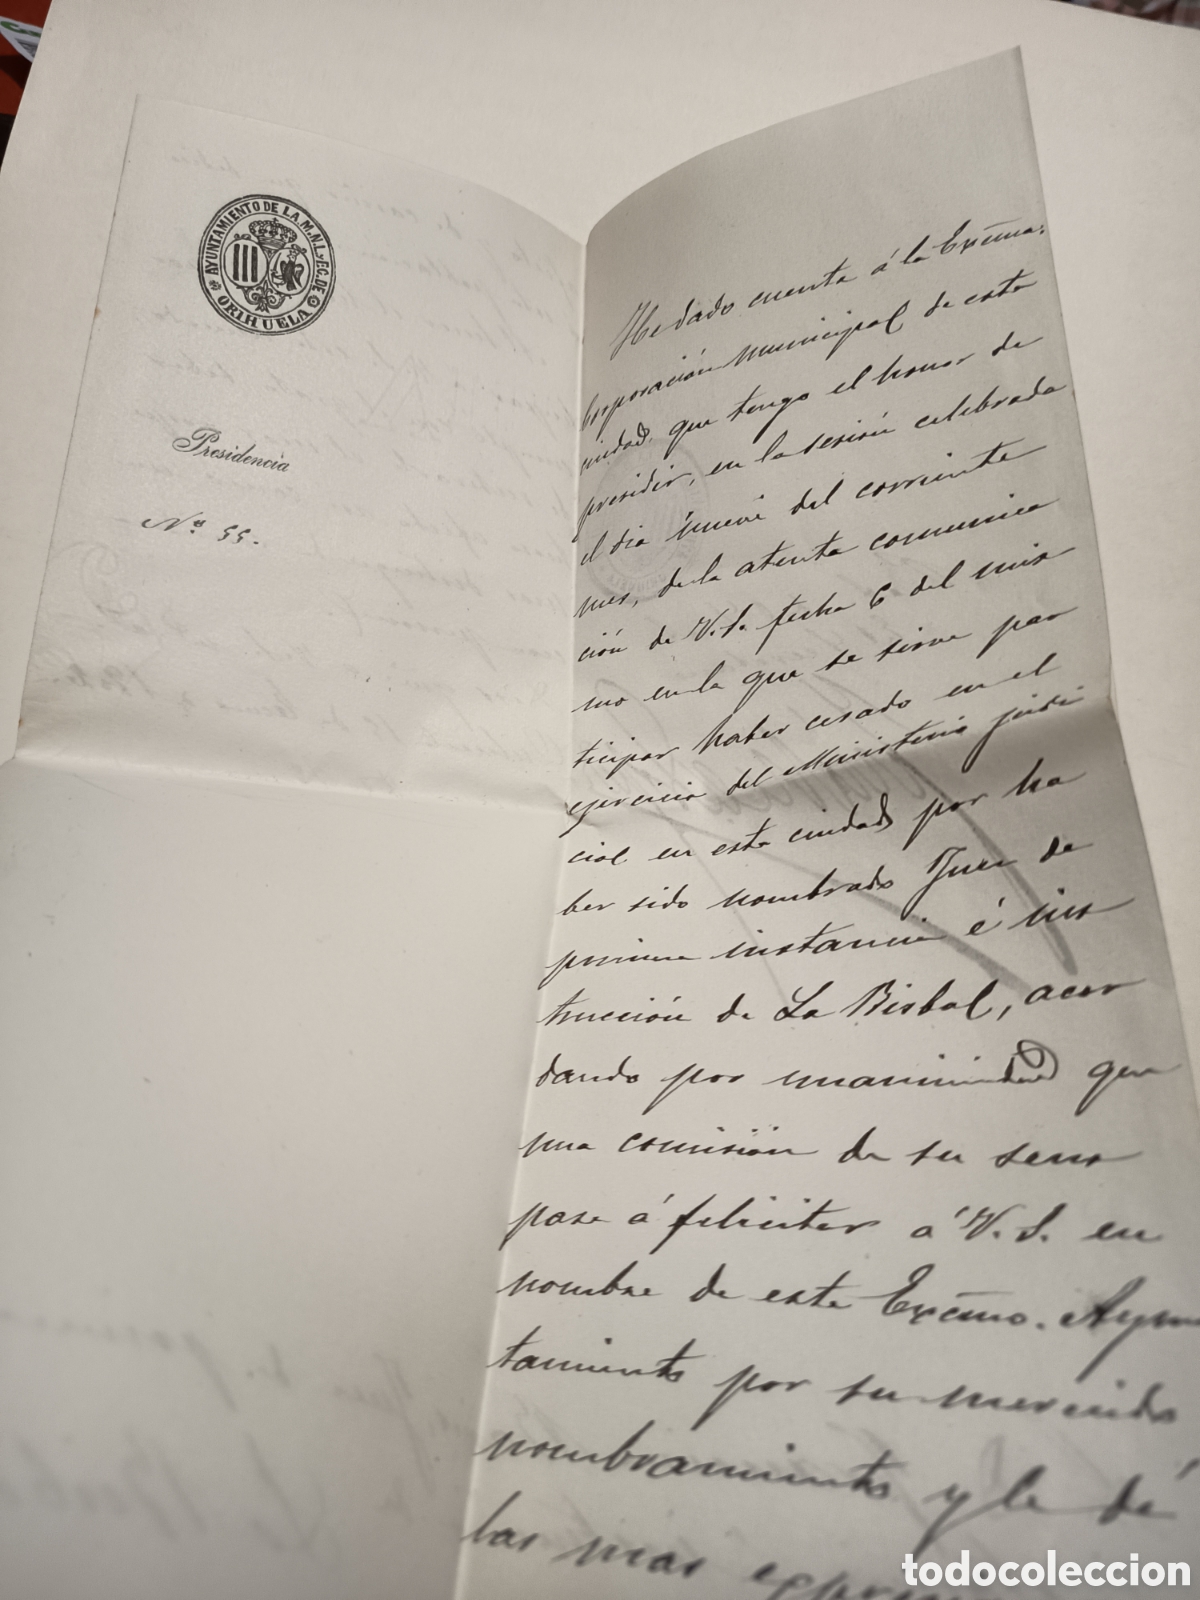 AYUNTAMIENTO DE LA M.N.L. y F.C. DE
ORIHUELA
Presidencia
Nº 55.
He dado cuenta á la Excma.
Corporación Municipal de esta
ciudad, que tengo el honor de
presidir, en la sesión celebrada
el dia nueve del corriente
mes, de la atenta comunica
ción de V.S. fecha 6 del mis
mo en la que se sirve par
ticipar haber cesado en el
ejercicio del Ministerio judi
cial en esta ciudad por ha
ber sido nombrado Juez de
primera instancia é ins
trucción de La Bisbal, acor
dando por unanimidad que
una comisión de su seno
pase á felicitar á V.S. en
nombre de este Excmo. Ayun
tamiento por su merecido
nombramiento y le dé
las mas
todocoleccion